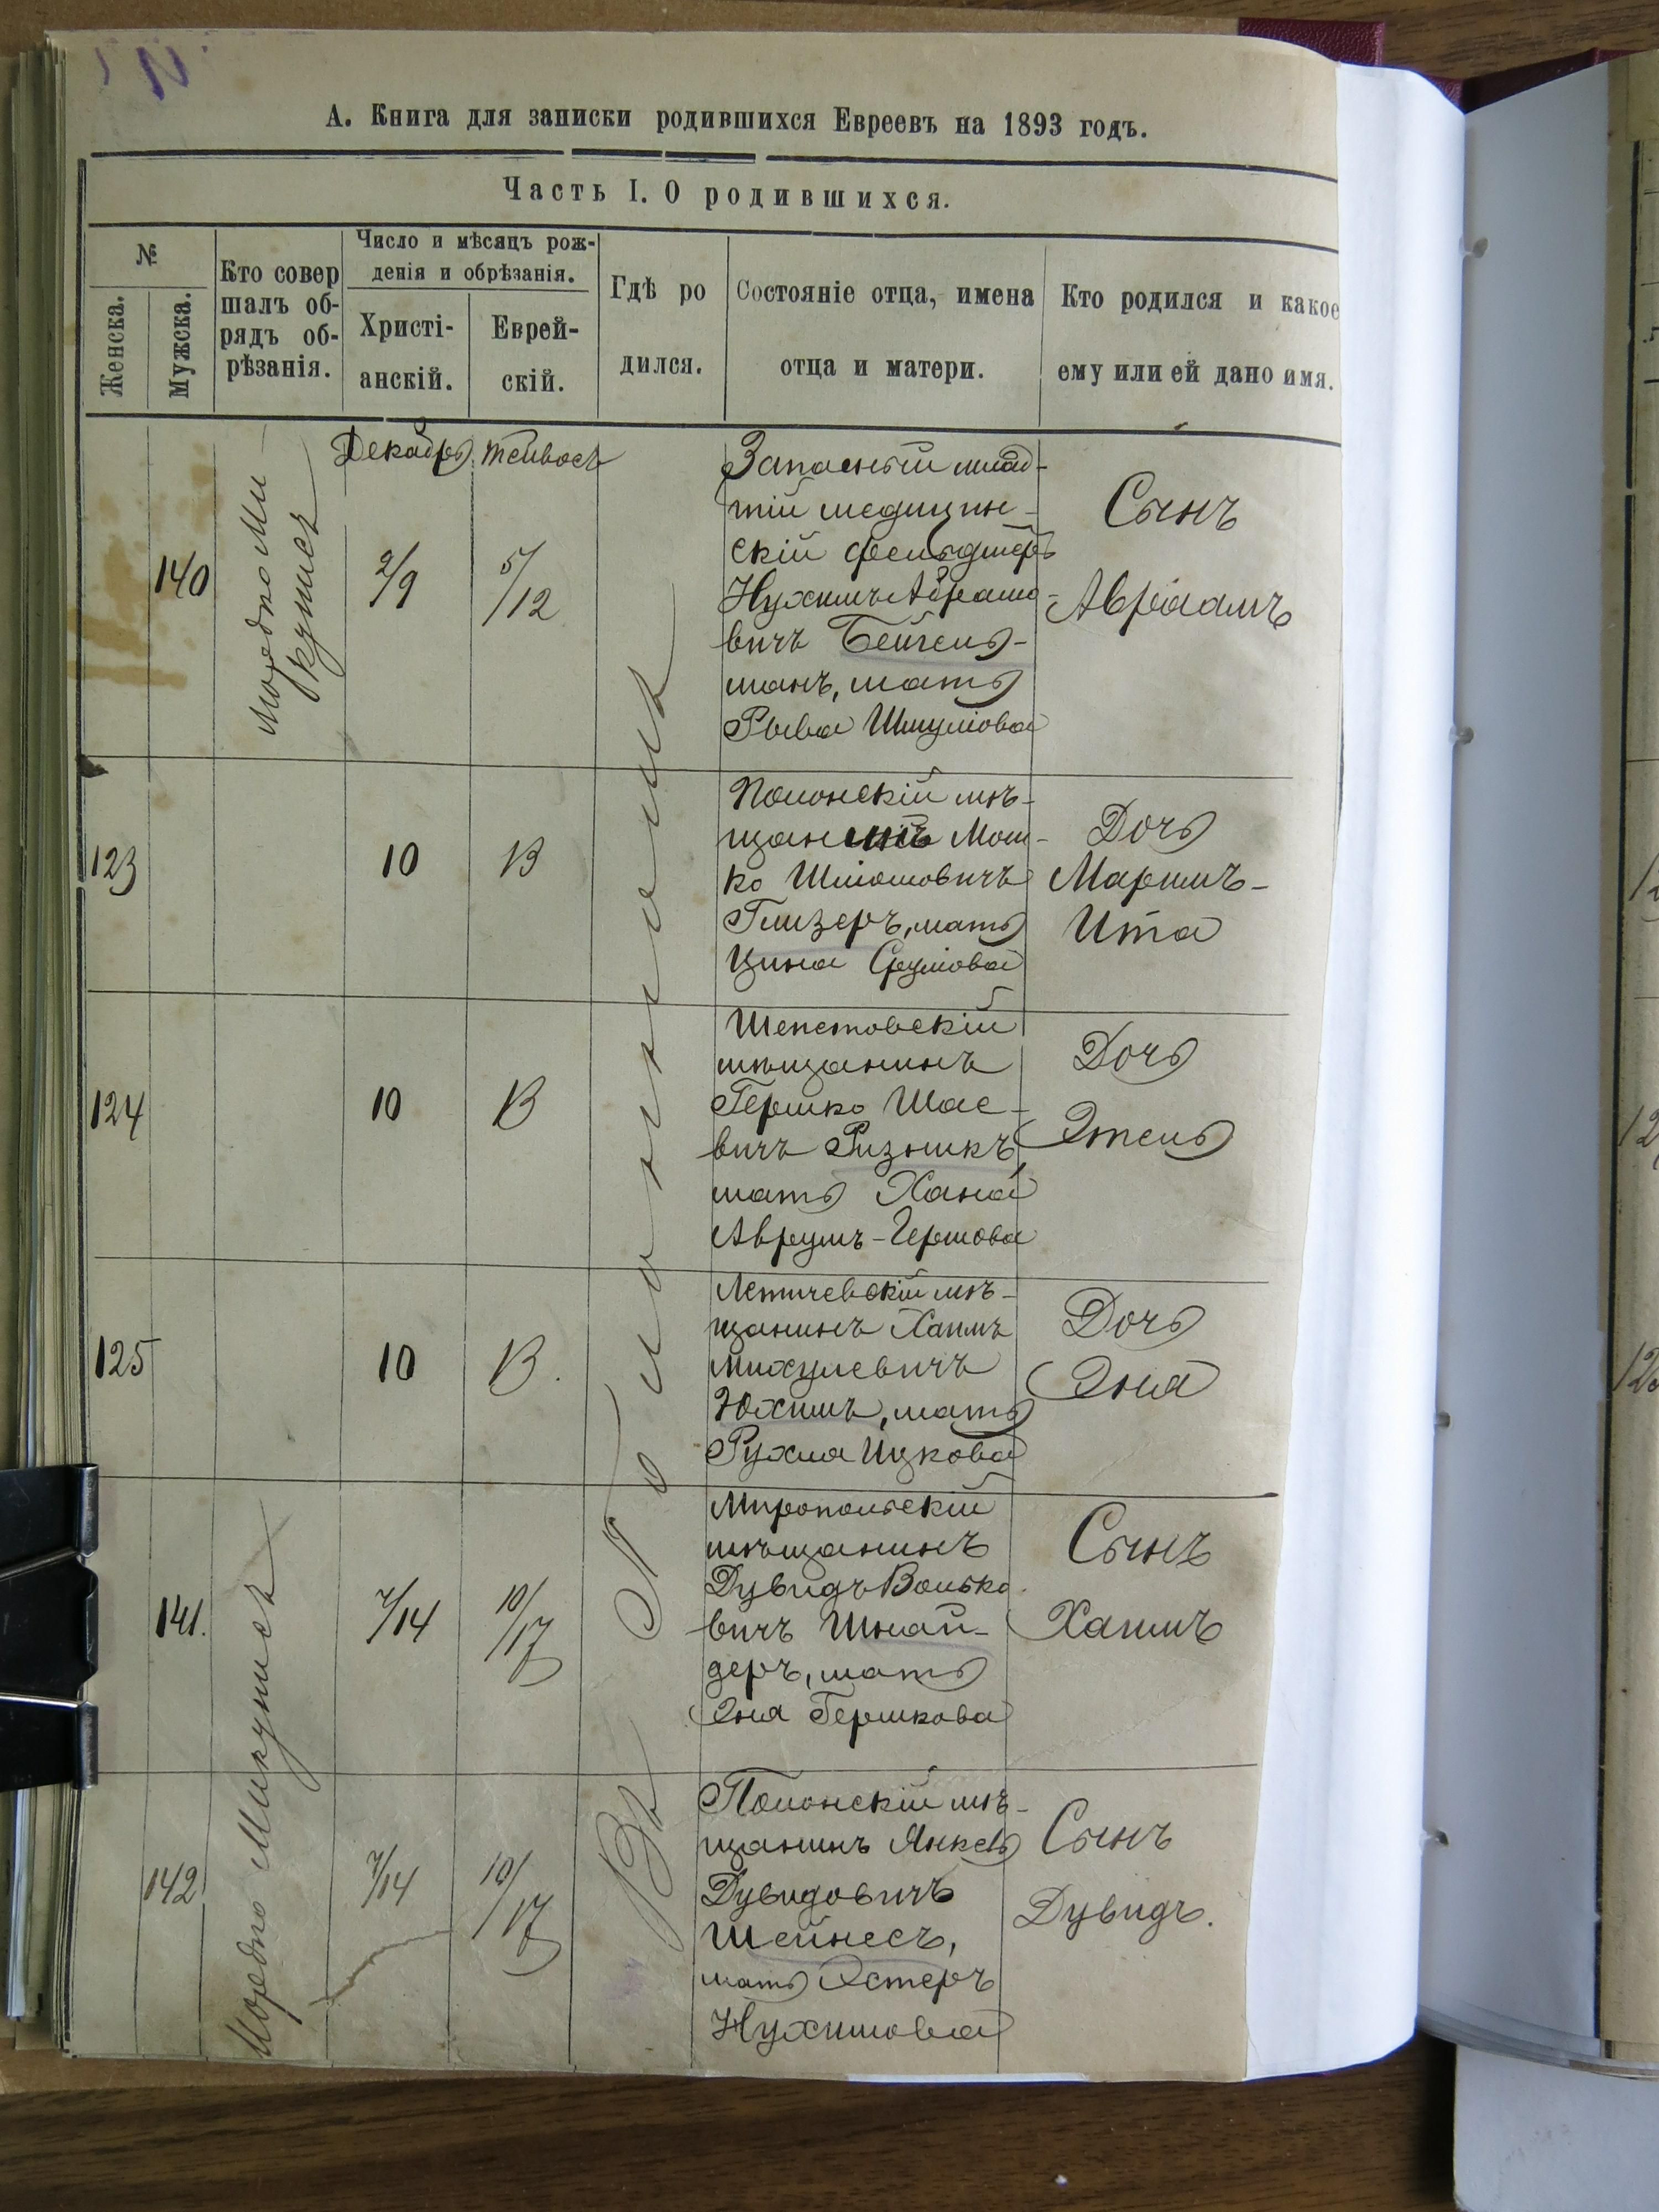 А. Книга для записки родившихся Евреевъ на 1893 годъ.
Часть I. О родившихся.
№
Женска.
Мужска.
Кто совер
шалъ об-
рядъ об-
рѣзанія.
Число и мѣсяцъ рож-
денія и обрѣзанія.
Христі-
анскій.
Еврей-
скій.
Гдѣ ро
дился.
Состояніе отца, имена
отца и матери.
Кто родился и какое
ему или ей дано имя.
Декабрь
Тейвесъ
140
Мордко Ми
кунисъ
2/9
5/12
Запасный млад-
шій медицин-
скій фельдшеръ
Нухимъ Абрамо-
вичъ Бейгель-
манъ, мать
Рыва Шмулова
Сынъ
Авраамъ
123
10
13
Полонскій мѣ-
щанинъ Мош-
ко Шліомовичъ
Глизеръ, мать
Цина Срулова
Дочь
Маримъ-
Ита
124
10
13
Шепетовскій
мѣщанинъ
Гершко Шае-
вичъ Ризникъ,
мать Хана
Аврумъ-Гершова
Дочь
Этель
125
10
13.
Летичевскій мѣ-
щанинъ Хаимъ
Михулевичъ
Юхимъ, мать
Рухля Ицкова
Дочь
Эня
141.
Мордко Микунисъ
7/14
10/17
Миропольскій
мѣщанинъ
Дувидъ Волько
вичъ Шнай-
деръ, мать
Эня Гершкова
Сынъ
Хаимъ
142
7/14
10/17
Полонскій мѣ-
щанинъ Янкель
Дувидовичъ
Шейнесъ,
мать Эстеръ
Нухимова
Сынъ
Дувидъ.
Въ Полонномъ